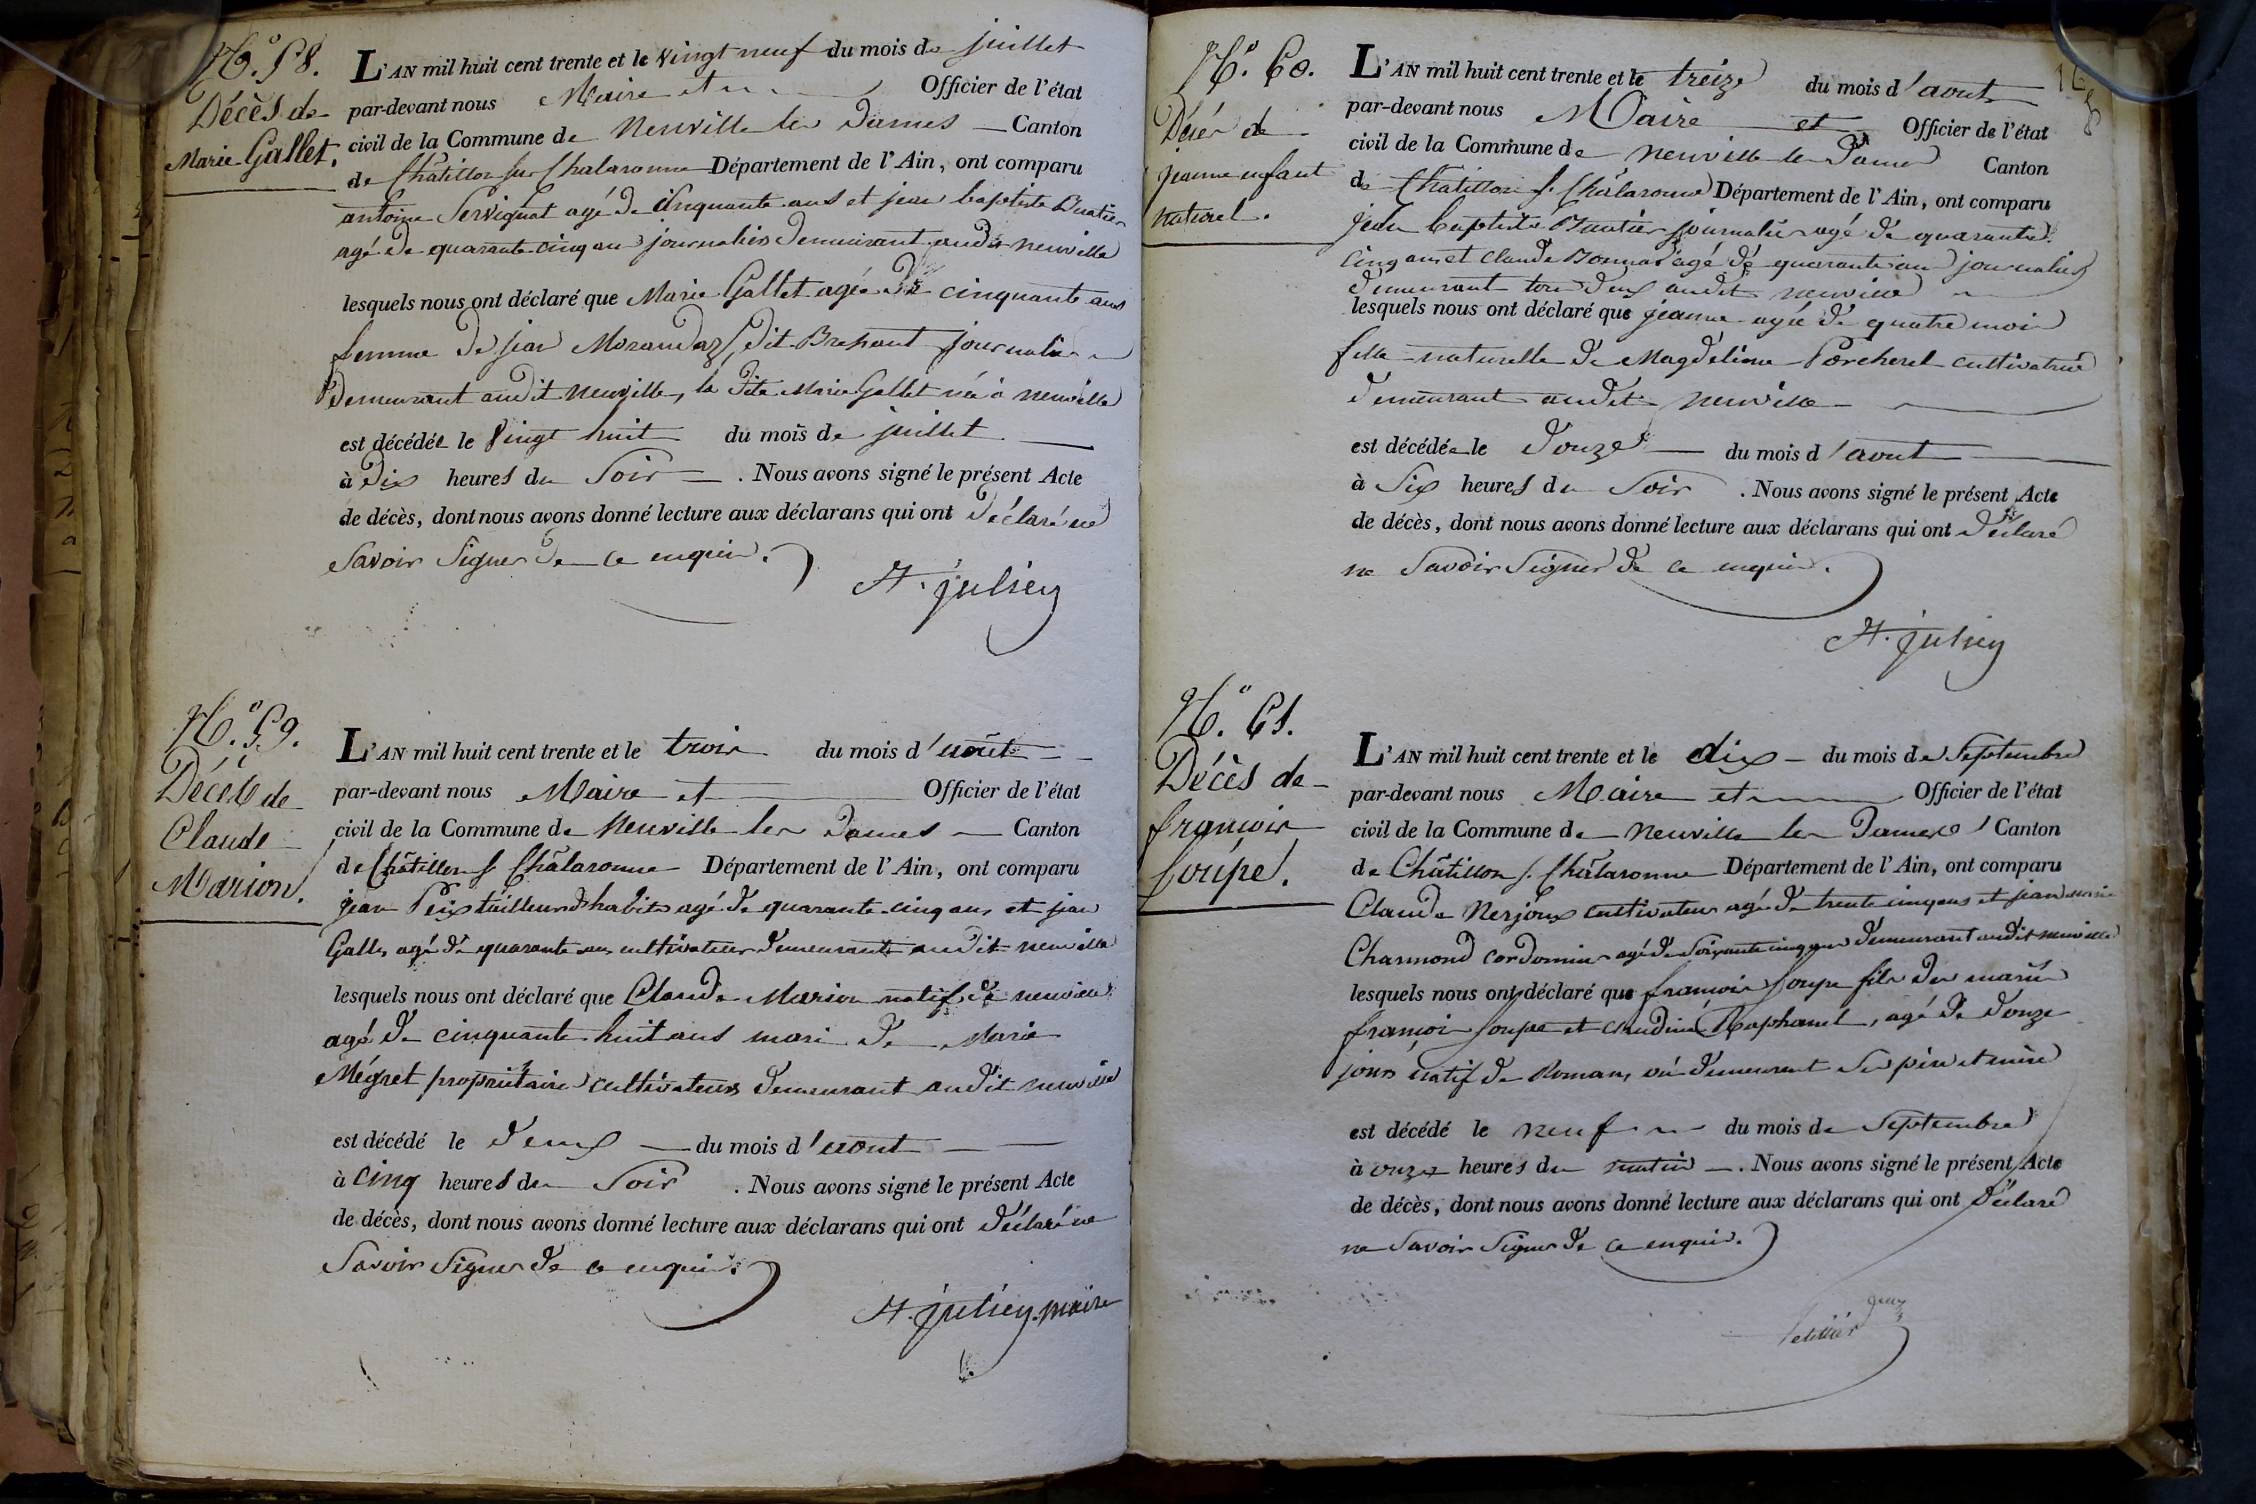 N.° 58.
Décès de
Marie Gallet.
L'AN mil huit cent trente et le vingt neuf du mois de juillet
par-devant nous Maire et Officier de l'état
civil de la Commune de Neuville les Dames Canton
de Châtillon sur Chalaronne Département de l'Ain, ont comparu
antoine Servignat agé de cinquante ans et jean baptiste
agé de quarante cinq ans journaliers demeurant audit neuville
lesquels nous ont déclaré que Marie Gallet agée de cinquante ans
femme de jean Morandaz, dit journalier
demeurant audit Neuville, la dite Marie Gallet née à neuville
est décédée le vingt huit du mois de juillet
à dix heures du Soir . Nous avons signé le présent Acte
de décès, dont nous avons donné lecture aux déclarans qui ont déclaré ne
Savoir Signer de ce enquis.
H. julien
N.° 59.
Décès de
Claude
Marion.
L'AN mil huit cent trente et le trois du mois d'août
par-devant nous Maire et Officier de l'état
civil de la Commune de Neuville les Dames Canton
de Châtillon s. Châlaronne Département de l'Ain, ont comparu
jean tailleur d'habits agé de quarante cinq ans et jean
Gallet agé de quarante ans cultivateur demeurants audit neuville
lesquels nous ont déclaré que Claude Marion natif de neuville
agé de cinquante huit ans mari de Marie
Mégret propriétaire cultivateur demeurant audit neuville
est décédé le deux du mois d'aout
à cinq heures du Soir . Nous avons signé le présent Acte
de décès, dont nous avons donné lecture aux déclarans qui ont déclaré ne
Savoir Signer de ce enquis.
H. julien maire
N.° 60.
Décès de
jeanne enfant
naturel.
L'AN mil huit cent trente et le treize du mois d'aout
par-devant nous Maire et Officier de l'état
civil de la Commune de Neuville les Dames Canton
de Châtillon s. Châlaronne Département de l'Ain, ont comparu
jean baptiste journalier agé de quarante
cinq ans et claude agé de quarante ans journalier
demeurant tous deux audit neuville
lesquels nous ont déclaré que jeanne agée de quatre mois
fille naturelle de Magdeleine Porcherel cultivatrice
demeurant audit Neuville
est décédée le douze du mois d'aout
à Six heures du Soir . Nous avons signé le présent Acte
de décès, dont nous avons donné lecture aux déclarans qui ont déclaré
ne Savoir Signer de ce enquis.
H. julien
N.° 61.
Décès de
françois
Soupe.
L'AN mil huit cent trente et le dix du mois de Septembre
par-devant nous Maire et Officier de l'état
civil de la Commune de Neuville les Dames Canton
de Châtillon s. Châlaronne Département de l'Ain, ont comparu
Claude Nerjoux cultivateur agé de trente cinq ans et jean marie
Charmond cordonnier agé de Soixante cinq ans demeurant audit neuville
lesquels nous ont déclaré que françois Soupe fils des mariés
françois Soupe et claudine Raphanel, agé de douze
jours natif de Romans, où demeurent Ses père et mère
est décédé le neuf du mois de Septembre
à onze heures du matin . Nous avons signé le présent Acte
de décès, dont nous avons donné lecture aux déclarans qui ont déclaré
ne Savoir Signer de ce enquis.